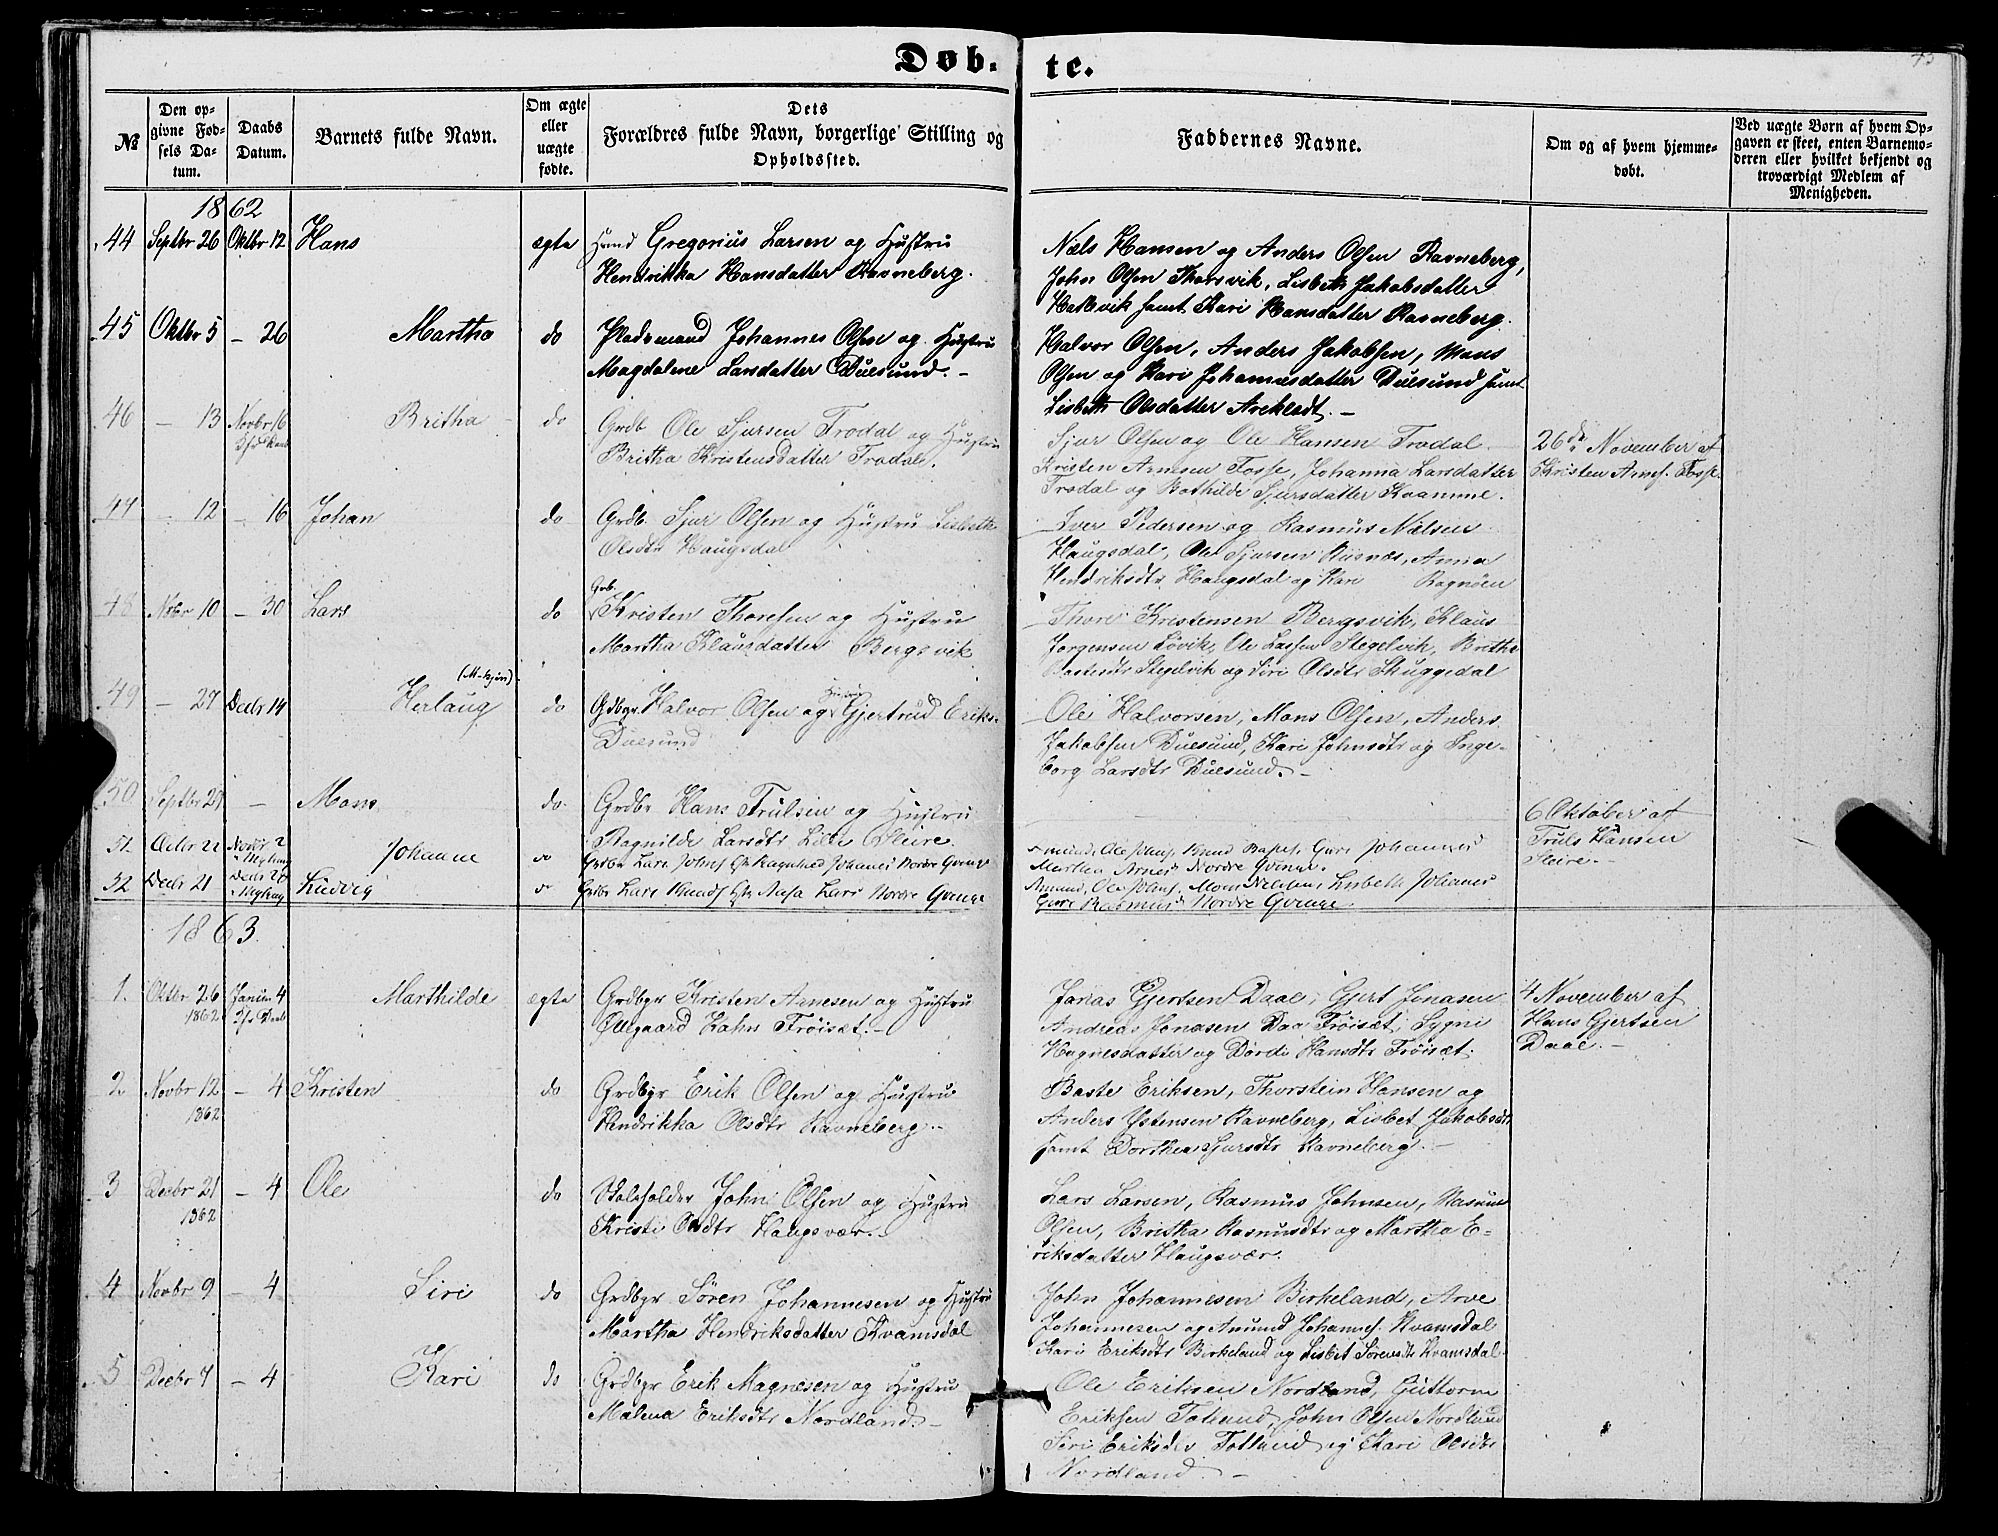 Døb- te.
45
№
Den op-
givne Fød-
sels Da-
tum.
Daabs
Datum.
Barnets fulde Navn.
Om ægte
eller
uægte
fødte.
Dets
Forældres fulde Navn, borgerlige Stilling og
Opholdssted.
Faddernes Navne.
Om og af hvem hjemme-
døbt.
Ved uægte Børn af hvem Op-
gaven er skeet, enten Barnemo-
deren eller hvilket bekjendt og
troværdigt Medlem af
Menigheden.
1862
44 Septbr 26 Oktbr 12 Hans ægte Gregorius Larsen og Hustru
Hendrikka Hansdatter Ravneberg.
Niels Hansen og Anders Olsen Ravneberg,
John Olsen Thorsvik, Lisbeth Jakobsdatter
Hallvik samt Kari Hansdatter Ravneberg.
45 Oktbr 5 – 26 Martha do Pladsmand Johannes Olsen og Hustru
Magdalene Larsdatter Duesund. –
Halvor Olsen, Anders Jakobsen, Mons
Olsen og Kari Johannesdatter Duesund samt
Lisbeth Olsdatter –
46 – 13 Novbr 16 Britha do Grdb Ole Sjursen Trodal og Hustru
Britha Kristensdatter Trodal.
Sjur Olsen og Ole Hansen Trodal
Kristen Arnesen Fosse, Johanna Larsdatter
Trodal og Bothilde Sjursdatter Kvamme.
26de November af
Kristen Arnes. Fosse.
47 – 12 – 16 Johan do Grdb. Sjur Olsen og Hustru Lisbeth
Olsdtr Haugsdal
Iver Pedersen og Rasmus Nielsen
Haugsdal, Ole Sjursen Risnes, Anna
Hendriksdtr Haugsdal og Kari Ragnöen
48 Nvbr 10 – 30 Lars do Grb. Kristen Thoresen og Hustru
Martha Klausdatter Bergsvik
Thore Kristensen Bergsvik, Klaus
Jørgensen Løvik, Ole Larsen Stegelvik, Britha
Stegelvik og Siri Olsdtr Skuggedal
49 – 27 Decbr 14 (M-kjøn) Herlaug do Gdbgr Halvor Olsen og Hustru Gjertrud Eriks-
Duesund
Ole Halvorsen, Mons Olsen, Anders
Jakobsen Duesund, Kari Johnsdtr og Inge-
borg Larsdtr Duesund. –
50 Septbr 29 – Mons do Grdbr Hans Trulsen og Hustru
Ragnilde Larsdtr Lille Sleire.
6 Oktober af
Truls Hansen
Sleire. –
51. Octbr 22 Novbr 2 Johanne do Grdbr Lars Johns. Ragnhild Johannes Nordre Qvinge
Amund, Ole Johns. Knud Guri Johannes
Martha Arnes Nordre Qvinge.
52 Decbr 21 Decbr 28 Ludvig do Grdbr Lars Knuds. Lars Nordre Qvinge
Amund, Ole Johns. Mons Nielsen, Lisbeth Johanes
Guri Rasmus Nordre Qvinge.
1863.
1. Oktbr 26 Januar 4 Marthilde ægte Grdbgr Kristen Arnesen og Hustru
1862
Øllegaard Hahn Trøiset. –
Jonas Gjertsen Daae, Gjert Jonasen
Andreas Jonasen Daa Trøiset, Sygni
Hagnesdatter og Dørdi Hansdtr Trøiset.
4 November af
Hans Gjertsen
Daae. –
2 Novbr 12 – 4 Kristen do Grdbgr Erik Olsen og Hustru
1862
Hendrikka Olsdtr Ravneberg. –
Baste Eriksen, Thorstein Hansen og
Anders Ystensen Ravneberg, Lisbet Jakobsdtr
samt Dorthea Sjursdtr Ravneberg. –
3 Decbr 21 – 4 Ole do John Olsen og Hustru
1862
Kristi Olsdtr Haugsvær. –
Lars Larsen, Rasmus Johnsen, Rasmus
Olsen, Britha Rasmusdtr og Martha E-
riksdatter Haugsvær.
4 Novbr 9 – 4 Siri do Grdbgr Søren Johannesen og Hustru
Martha Hendriksdatter Kvamsdal
John Johannesen Birkeland, Arve
Johannesen og Amund Johannes. Kvamsdal
Kari Eriksdtr Birkeland og Lisbet Sørensdtr Kvamsdal
5 Decbr 7 – 4 Kari do Grdbgr Erik Magnesen og Hustru
Malena Eriksdtr Nordland –
Ole Eriksen Nordland, Guttorm
Eriksen Totland, John Olsen Nordland
Siri Eriksdtr Totland og Kari Olsdtr
Nordland –